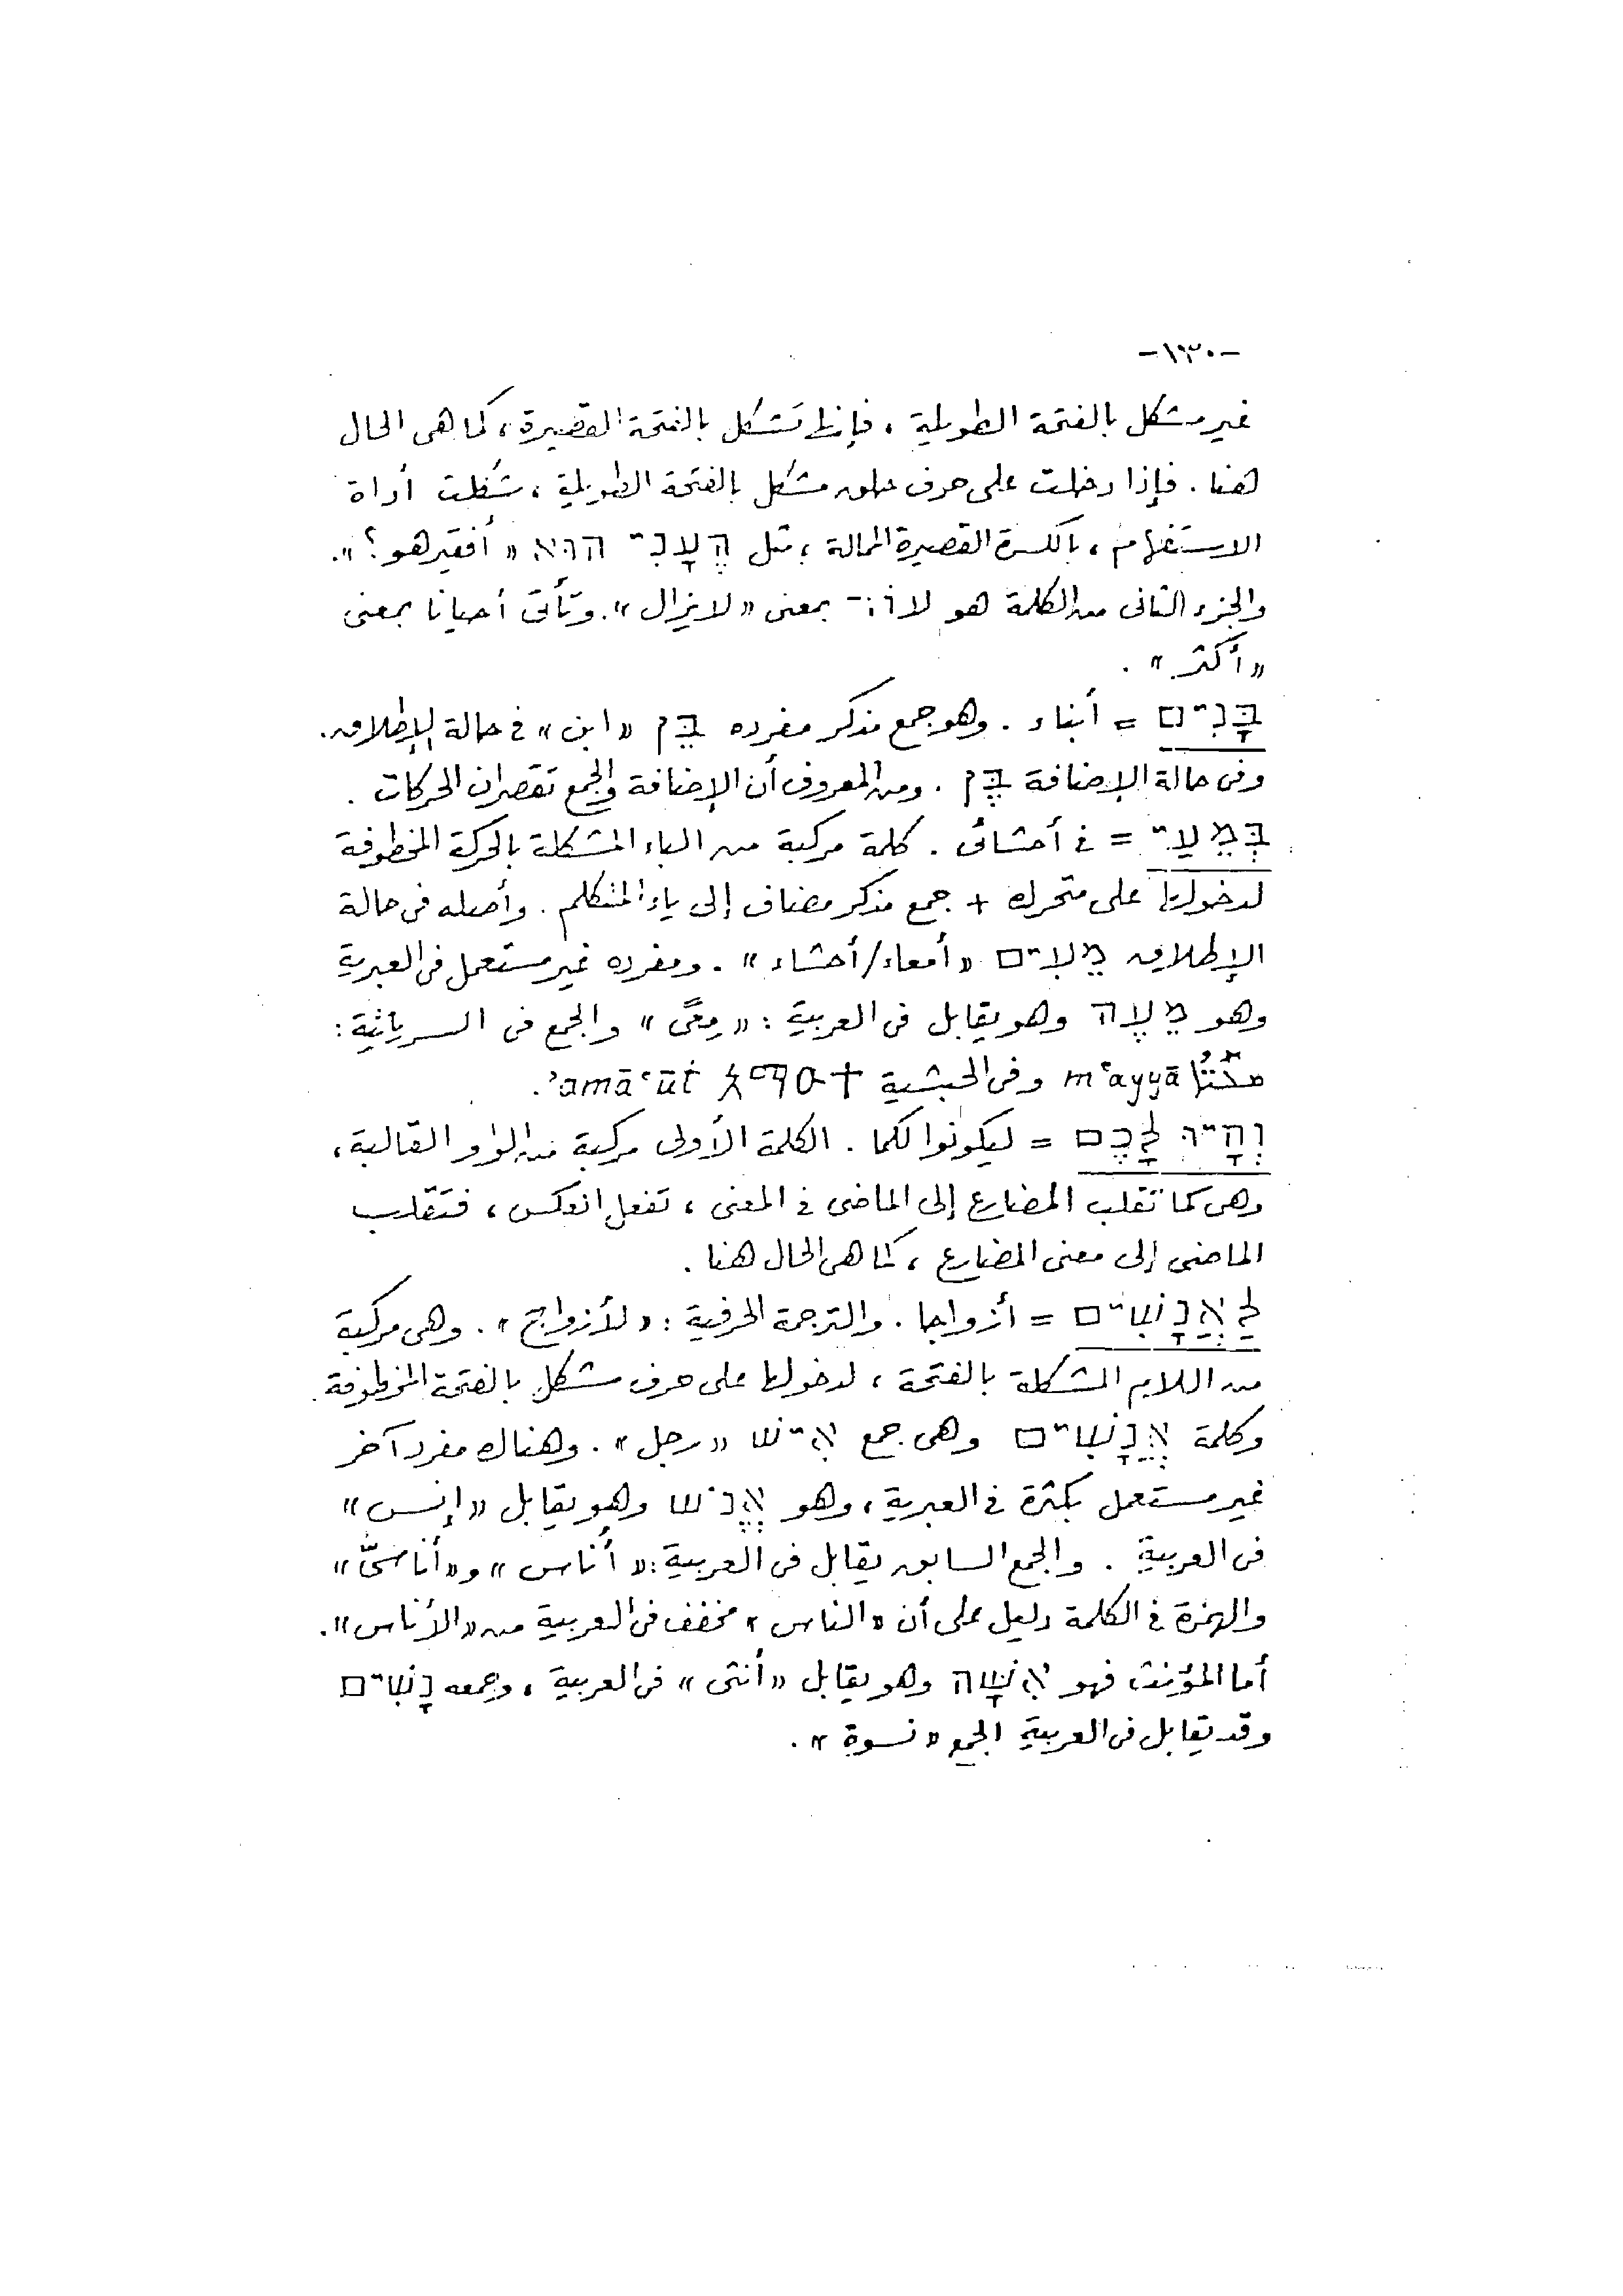 -١٣٠-
غير مشكل بالفتحة الطويلة ، فإنها تشكل بالفتحة القصيرة ، كما هى الحال
هنا . فإذا دخلت على حرف حلق مشكل بالفتحة الطويلة ، شكلت أداة
الاستفهام ، بالكسرة القصيرة الممالة ، مثل הֶעָנִי הוּא « أفقير هو ؟ » .
والجزء الثانى من الكلمة هو עוֹד بمعنى « لا يزال » . وتأتى أحيانا بمعنى
« أكثر » .
בָּנִים = أبناء . وهو جمع مذكر مفرده בֵּן « ابن » فى حالة الإطلاق .
وفى حالة الإضافة בֶּן . ومن المعروف أن الإضافة والجمع تقصران الحركات .
בְּמֵעַי = فى أحشائى . كلمة مركبة من الباء المشكلة بالحركة المخطوفة
لدخولها على متحرك + جمع مذكر مضاف إلى ياء المتكلم . وأصله فى حالة
الإطلاق מֵעִים « أمعاء/أحشاء » . ومفرده غير مستعمل فى العبرية
وهو מֵעֶה وهو يقابل فى العربية : « مِعًى » والجمع فى السريانية :
mʿayyā وفى الحبشية አማዑት ʾamāʿūt .
וְהָיוּ לָכֶם = ليكونوا لكما . الكلمة الأولى مركبة من الواو القالبة ،
وهى كما تقلب المضارع إلى الماضى فى المعنى ، تفعل العكس ، فتقلب
الماضى إلى معنى المضارع ، كما هى الحال هنا .
לַאֲנָשִׁים = أزواجا . والترجمة الحرفية : « لأزواج » . وهى مركبة
من اللام المشكلة بالفتحة ، لدخولها على حرف مشكل بالفتحة المخطوفة
وكلمة אֲנָשִׁים وهى جمع אִישׁ « رجل » . وهناك مفرد آخر
غير مستعمل بكثرة فى العبرية ، وهو אֱנוֹשׁ وهو يقابل « إنس »
فى العربية . والجمع السابق يقابل فى العربية : « أُناس » و« أناسىّ »
والهمزة فى الكلمة دليل على أن « الناس » مخفف فى العربية من « الأناس » .
أما المؤنث فهو אִשָּׁה وهو يقابل « أنثى » فى العربية ، وجمعه נָשִׁים
وقد يقابل فى العربية الجمع « نسوة » .